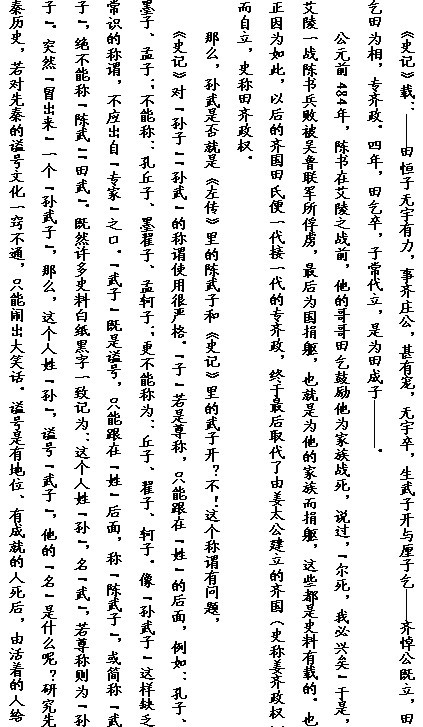 《史记》载：——田恒子无宇有力，事齐庄公，甚有宠，无宇卒，生武子开与厘子乞——齐悼公既立，田
乞田为相，专齐政。四年，田乞卒，子常代立，是为田成子——。
公元前484年，陈书在艾陵之战前，他的哥哥田乞鼓励他为家族战死，说过，「尔死，我必兴矣」于是，
艾陵一战陈书兵败被吴鲁联军所俘虏，最后为国捐躯。也就是为他的家族而捐躯，这些都是史料有载的。也
正因为如此，以后的齐国田氏便一代接一代的专齐政，终于最后取代了由姜太公建立的齐国（史称姜齐政权）
而自立，史称田齐政权。
那么，孙武是否就是《左传》里的陈武子和《史记》里的武子开？不！这个称谓有问题，
《史记》对「孙子」「孙武」的称谓使用很严格。「子」若是尊称，只能跟在「姓」的后面，例如：孔子、
墨子、孟子；不能称：孔丘子、墨翟子、孟轲子；更不能称为：丘子、翟子、轲子。像「孙武子」这样缺乏
常识的称谓，不应出自「专家」之口。「武子」既是谥号，只能跟在「姓」后面，称「陈武子」，或简称「武
子」，绝不能称「陈武」「田武」。既然许多史料白纸黑字一致记为：这个人姓「孙」，名「武」，若尊称则为「孙
子」。突然「冒出来」一个「孙武子」，那么，这个人姓「孙」，谥号「武子」，他的「名」是什么呢？研究先
秦历史，若对先秦的谥号文化一窍不通，只能闹出大笑话。谥号是有地位、有成就的人死后，由活着的人给